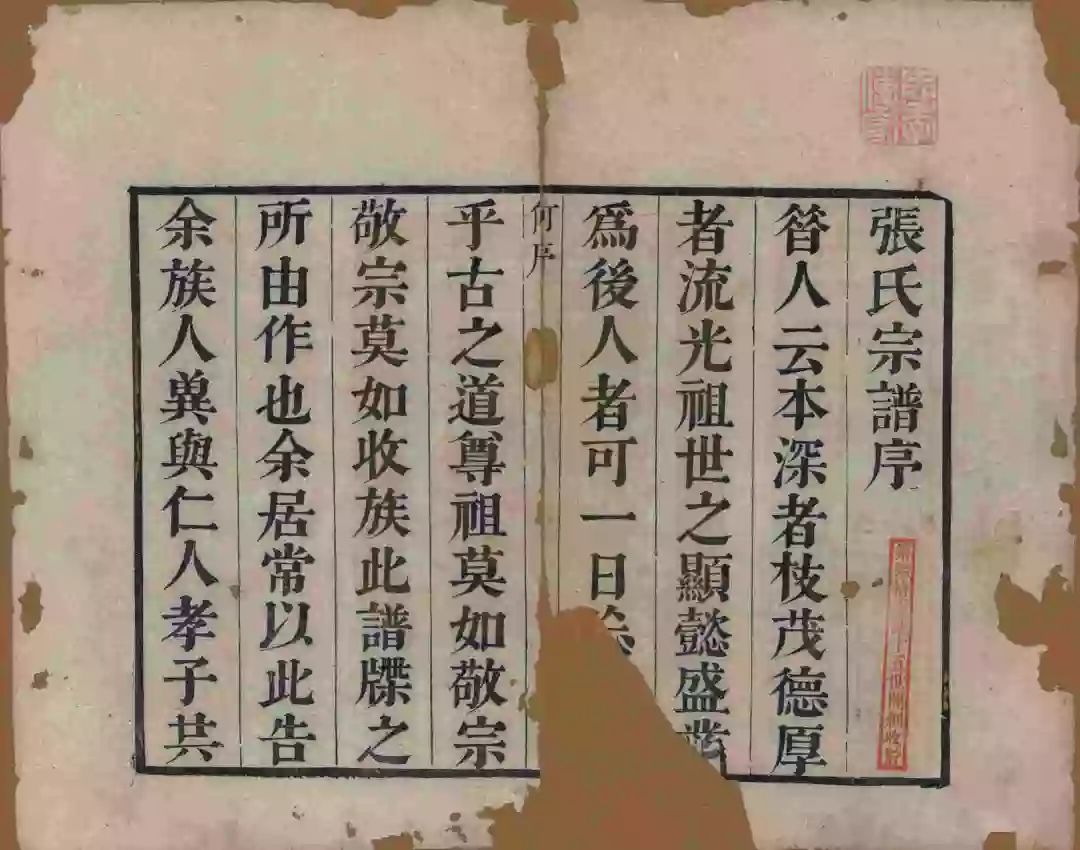 張氏宗譜序
昝人云本深者枝茂德厚
者流光祖世之顯懿盛
爲後人者可一日
何序
乎古之道尊祖莫如敬宗
敬宗莫如收族此譜牒之
所由作也余居常以此告
余族人兾與仁人孝子共